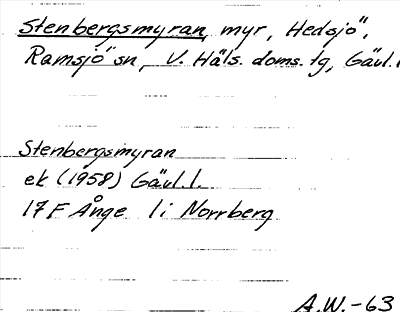 Stenbergsmyran, myr, Hedsjö",
Ramsjö" sn, V. Häls. doms. tg, Gävl. l
Stenbergsmyran
ek (1958) Gävl. l.
17 F Ånge 1 i Norrberg
A.W.-63